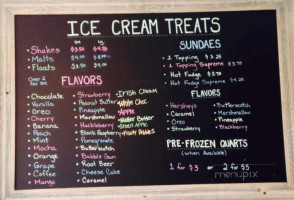 ICE CREAM TREATS
sm lg
Shakes $3.50 $4.50
Malts
Floats $3.50
Over 2
FLAVORS
Chocolate
Vanilla
Oreo
Cherry
Banana
Peach
Mint
Mocha
Orange
Grape
Coffee
Mango
Strawberry
Peanut Butter
Pineapple
Marshmallow
Huckleberry
Black Raspberry
Pomegranate
Butterscotch
Bubble Gum
Root Beer
Cheese Cake
Caramel
Irish Cream
White Choc
Apple
Green Apple
SUNDAES
1 Topping $3.25
1 Topping Supreme
Hot Fudge $3.75
Hot Fudge Supreme $4.25
FLAVORS
Hersheys
Caramel
Oreo
Strawberry
Butterscotch
Marshmallow
Pineapple
Blackberry
PRE-FROZEN QUARTS
(when Available)
1 for $3 or 2 for $5
menupix